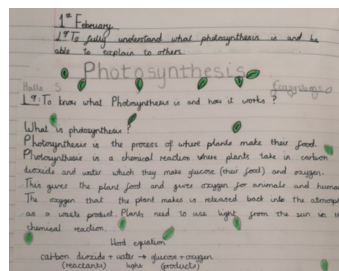 1st February
L9: To fully understand what photosynthesis is and be
able to explain to others.
Photosynthesis
L9: To know what Photosynthesis is and how it works?
What is photosynthesis?
Photosynthesis is the process of where plants make their food.
Photosynthesis is a chemical reaction where plants take in carbon
dioxide and water which they make glucose (their food) and oxygen.
This gives the plant food and gives oxygen for animals and human
The oxygen that the plant makes is released back into the atmosp
as a waste product. Plants need to use light from the sun
chemical reaction.
Word equation
carbon dioxide + water → glucose + oxygen
(reactants) light (products)